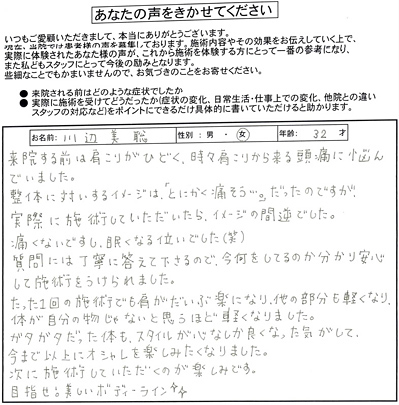 あなたの声をきかせてください
いつもご愛顧いただきまして、本当にありがとうございます。
現在、当院では患者様の声を募集しております。施術内容やその効果をお伝えしていく上で、
実際に体験されたあなた様の声が、これから施術を体験する方にとって一番の参考になり、
また私どもスタッフにとって今後の励みとなります。
些細なことでもかまいませんので、お気づきのことをお寄せください。
● 来院される前はどのような症状でしたか
● 実際に施術を受けてどうだったか(症状の変化、日常生活・仕事上での変化、他院との違い
スタッフの対応など)をポイントにできるだけ具体的に書いていただけると助かります。
お名前: 川辺美聡 性別: 男・女 年齢: 32 才
来院する前は肩こりがひどく、時々肩こりから来る頭痛に悩ん
でいました。
整体に対するイメージは、「とにかく痛そう…。」だったのですが、
実際に施術していただいたら、イメージの間違でした。
痛くないですし、眠くなる位いでした(笑)
質問には丁寧に答えて下さるので、今何をしてるのか分かり安心
して施術をうけられました。
たった1回の施術でも肩がだいぶ楽になり、他の部分も軽くなり、
体が自分の物じゃないと思うほど軽くなりました。
ガタガタだった体も、スタイルが心なしか良くなった気がして、
今まで以上にオシャレを楽しみたくなりました。
次に施術していただくのが楽しみです。
目指せ!美しいボディーライン☆☆